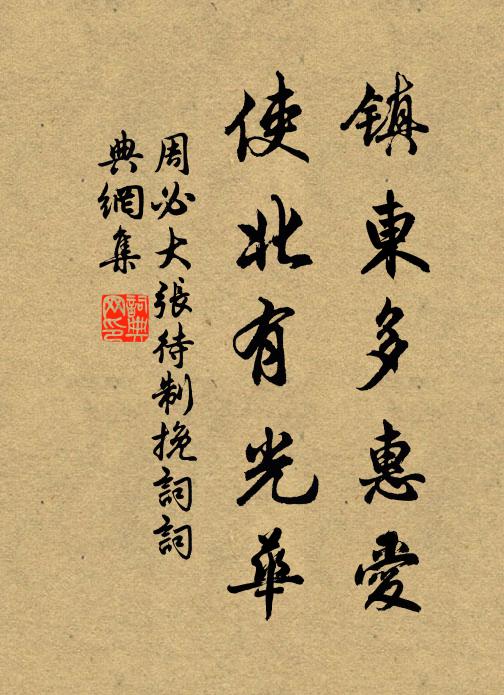 鎮東多惠愛
使北有光華
周必大張待制挽詞詞
典網集
詞典
网印